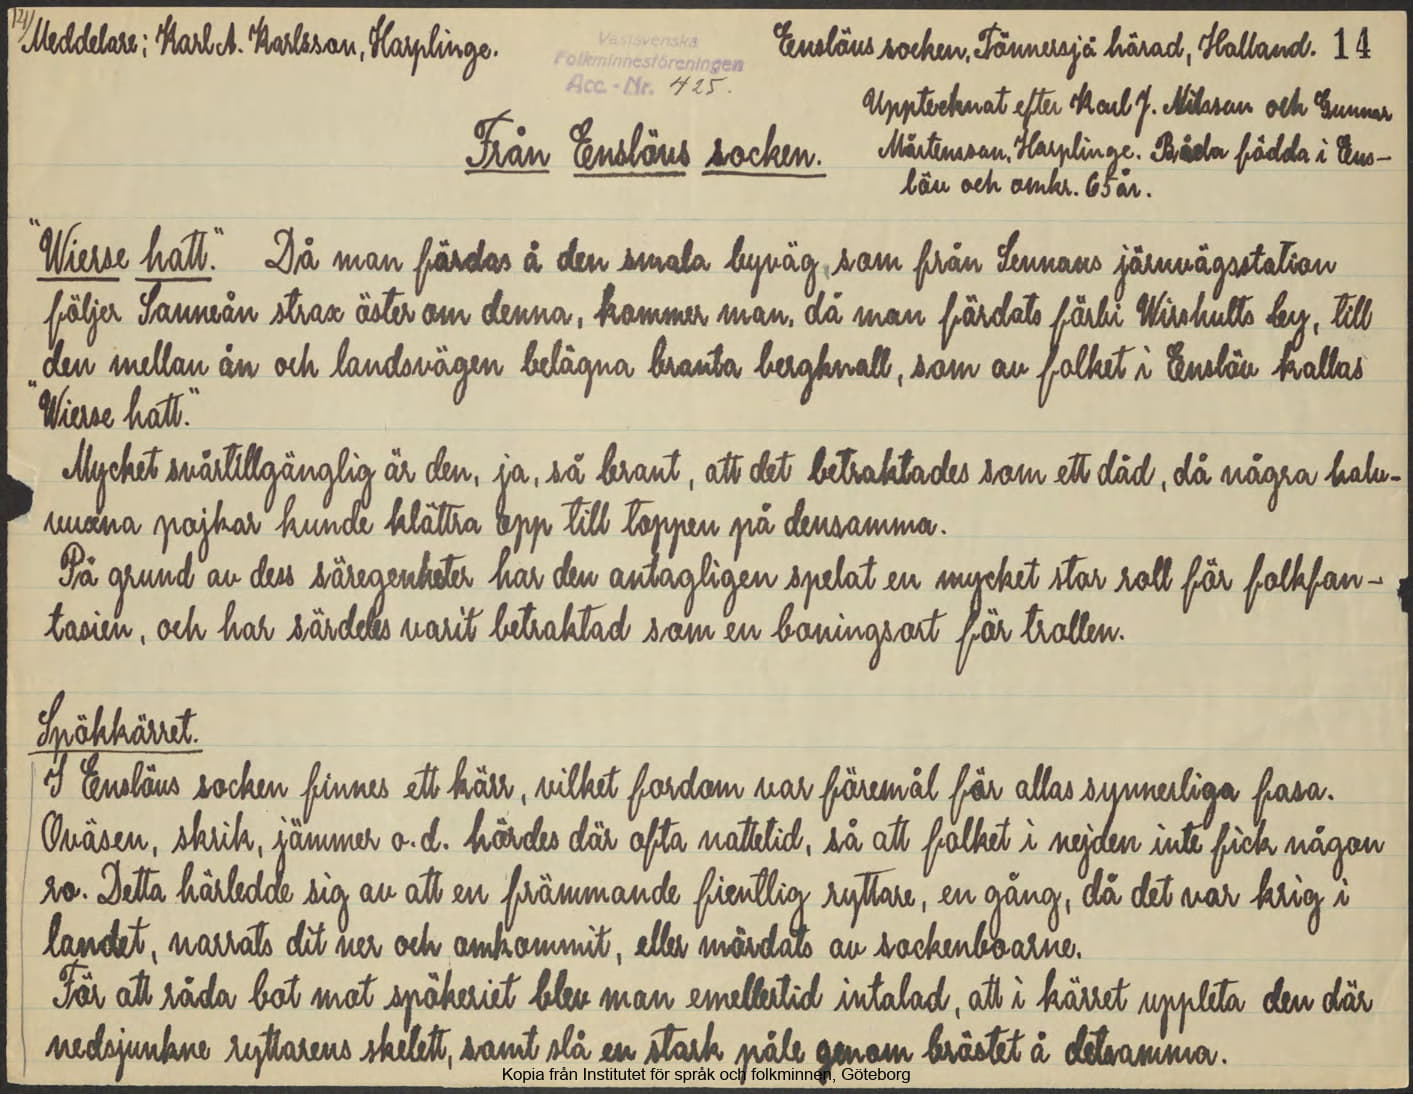 14/
Meddelare; Karl A. Karlsson, Harplinge.
Västsvenska
Folkminnesföreningen
Acc.-Nr. 425.
Enslövs socken, Tönnersjö härad, Halland. 14
Upptecknat efter Karl J. Nilsson och Gunnar
Mårtensson, Harplinge. Båda födda i Ens-
löv och omkr. 65 år.
Från Enslövs socken.
"Wierse hatt." Då man färdas å den smala byväg, som från Sennans järnvägsstation
följer Sanneån strax öster om denna, kommer man, då man färdats förbi Wirshults by, till
den mellan ån och landsvägen belägna branta bergknall, som av folket i Enslöv kallas
"Wierse hatt."
Mycket svårtillgänglig är den, ja, så brant, att det betraktades som ett dåd, då några halv-
vuxna pojkar kunde klättra opp till toppen på densamma.
På grund av dess säregenheter har den antagligen spelat en mycket stor roll för folkfan-
tasien, och har särdeles varit betraktad som en boningsort för trollen.
Spökkärret.
I Enslövs socken finnes ett kärr, vilket fordom var föremål för allas synnerliga fasa.
Oväsen, skrik, jämmer o.d. hördes där ofta nattetid, så att folket i nejden inte fick någon
ro. Detta härledde sig av att en främmande fientlig ryttare, en gång, då det var krig i
landet, narrats dit ner och omkommit, eller mördats av sockenboarne.
För att råda bot mot spökeriet blev man emellertid intalad, att i kärret uppleta den där
nedsjunkne ryttarens skelett, samt slå en stark påle genom bröstet å detsamma.
Kopia från Institutet för språk och folkminnen, Göteborg